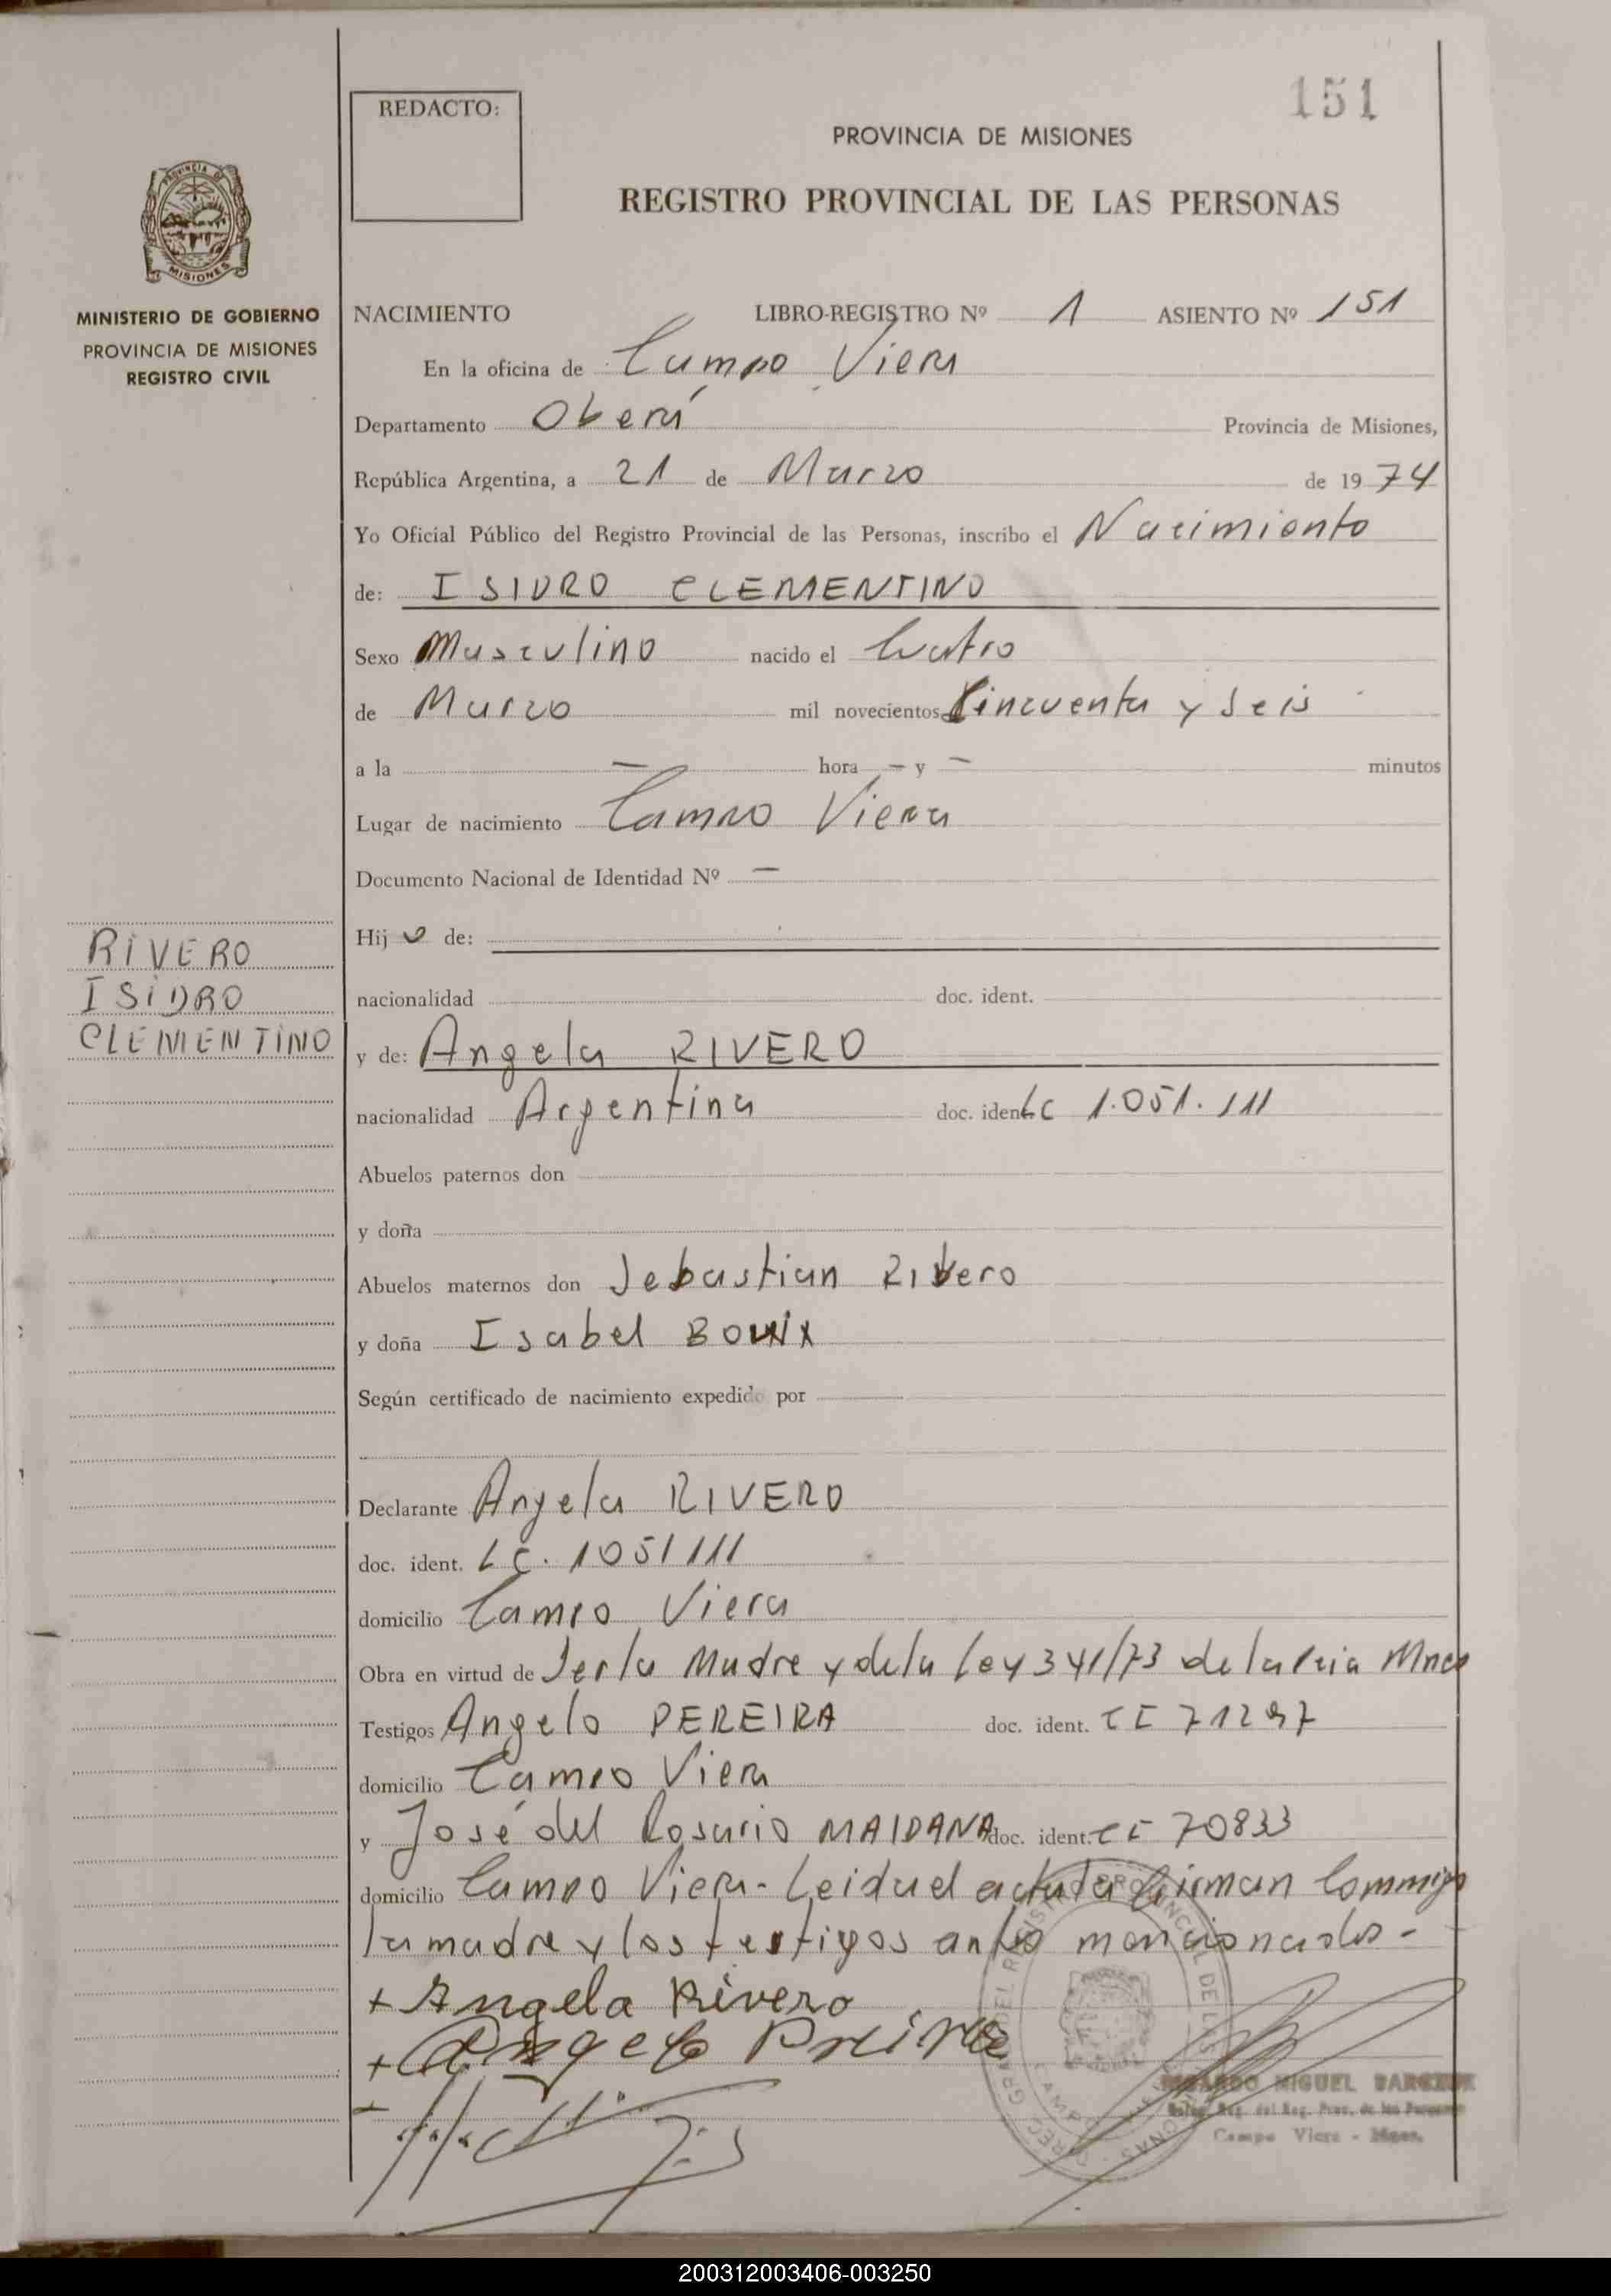 151
REDACTO:
PROVINCIA DE MISIONES
REGISTRO PROVINCIAL DE LAS PERSONAS
PROVINCIA DE
MISIONES
MINISTERIO DE GOBIERNO
PROVINCIA DE MISIONES
REGISTRO CIVIL
NACIMIENTO LIBRO-REGISTRO Nº 1 ASIENTO Nº 151
En la oficina de Campo Viera
Departamento Oberá Provincia de Misiones,
República Argentina, a 21 de Marzo de 1974
Yo Oficial Público del Registro Provincial de las Personas, inscribo el Nacimiento
de: ISIDRO CLEMENTINO
Sexo Masculino nacido el Cuatro
de Marzo mil novecientos Cincuenta y Seis
a la — hora — y — minutos
Lugar de nacimiento Campo Viera
Documento Nacional de Identidad Nº —
Hijo de:
nacionalidad doc. ident.
RIVERO
ISIDRO
CLEMENTINO
y de: Angela RIVERO
nacionalidad Argentina doc. ident. LC 1.051.111
Abuelos paternos don
y doña
Abuelos maternos don Sebastian Rivero
y doña Isabel
Según certificado de nacimiento expedido por
Declarante Angela RIVERO
doc. ident. LC. 1051111
domicilio Campo Viera
Obra en virtud de Ser la Madre y de la Ley 341/73 de la Pcia Mnes
Testigos Angelo PEREIRA doc. ident. CI 71297
domicilio Campo Viera
y José del Rosario MAIDANA doc. ident. CI 70833
domicilio Campo Viera - Leida el acta la firman Conmigo
la madre y los testigos antes mencionados -
+ Angela Rivero
+ Angelo
MIGUEL
Campo Viera - Mnes.
200312003406-003250